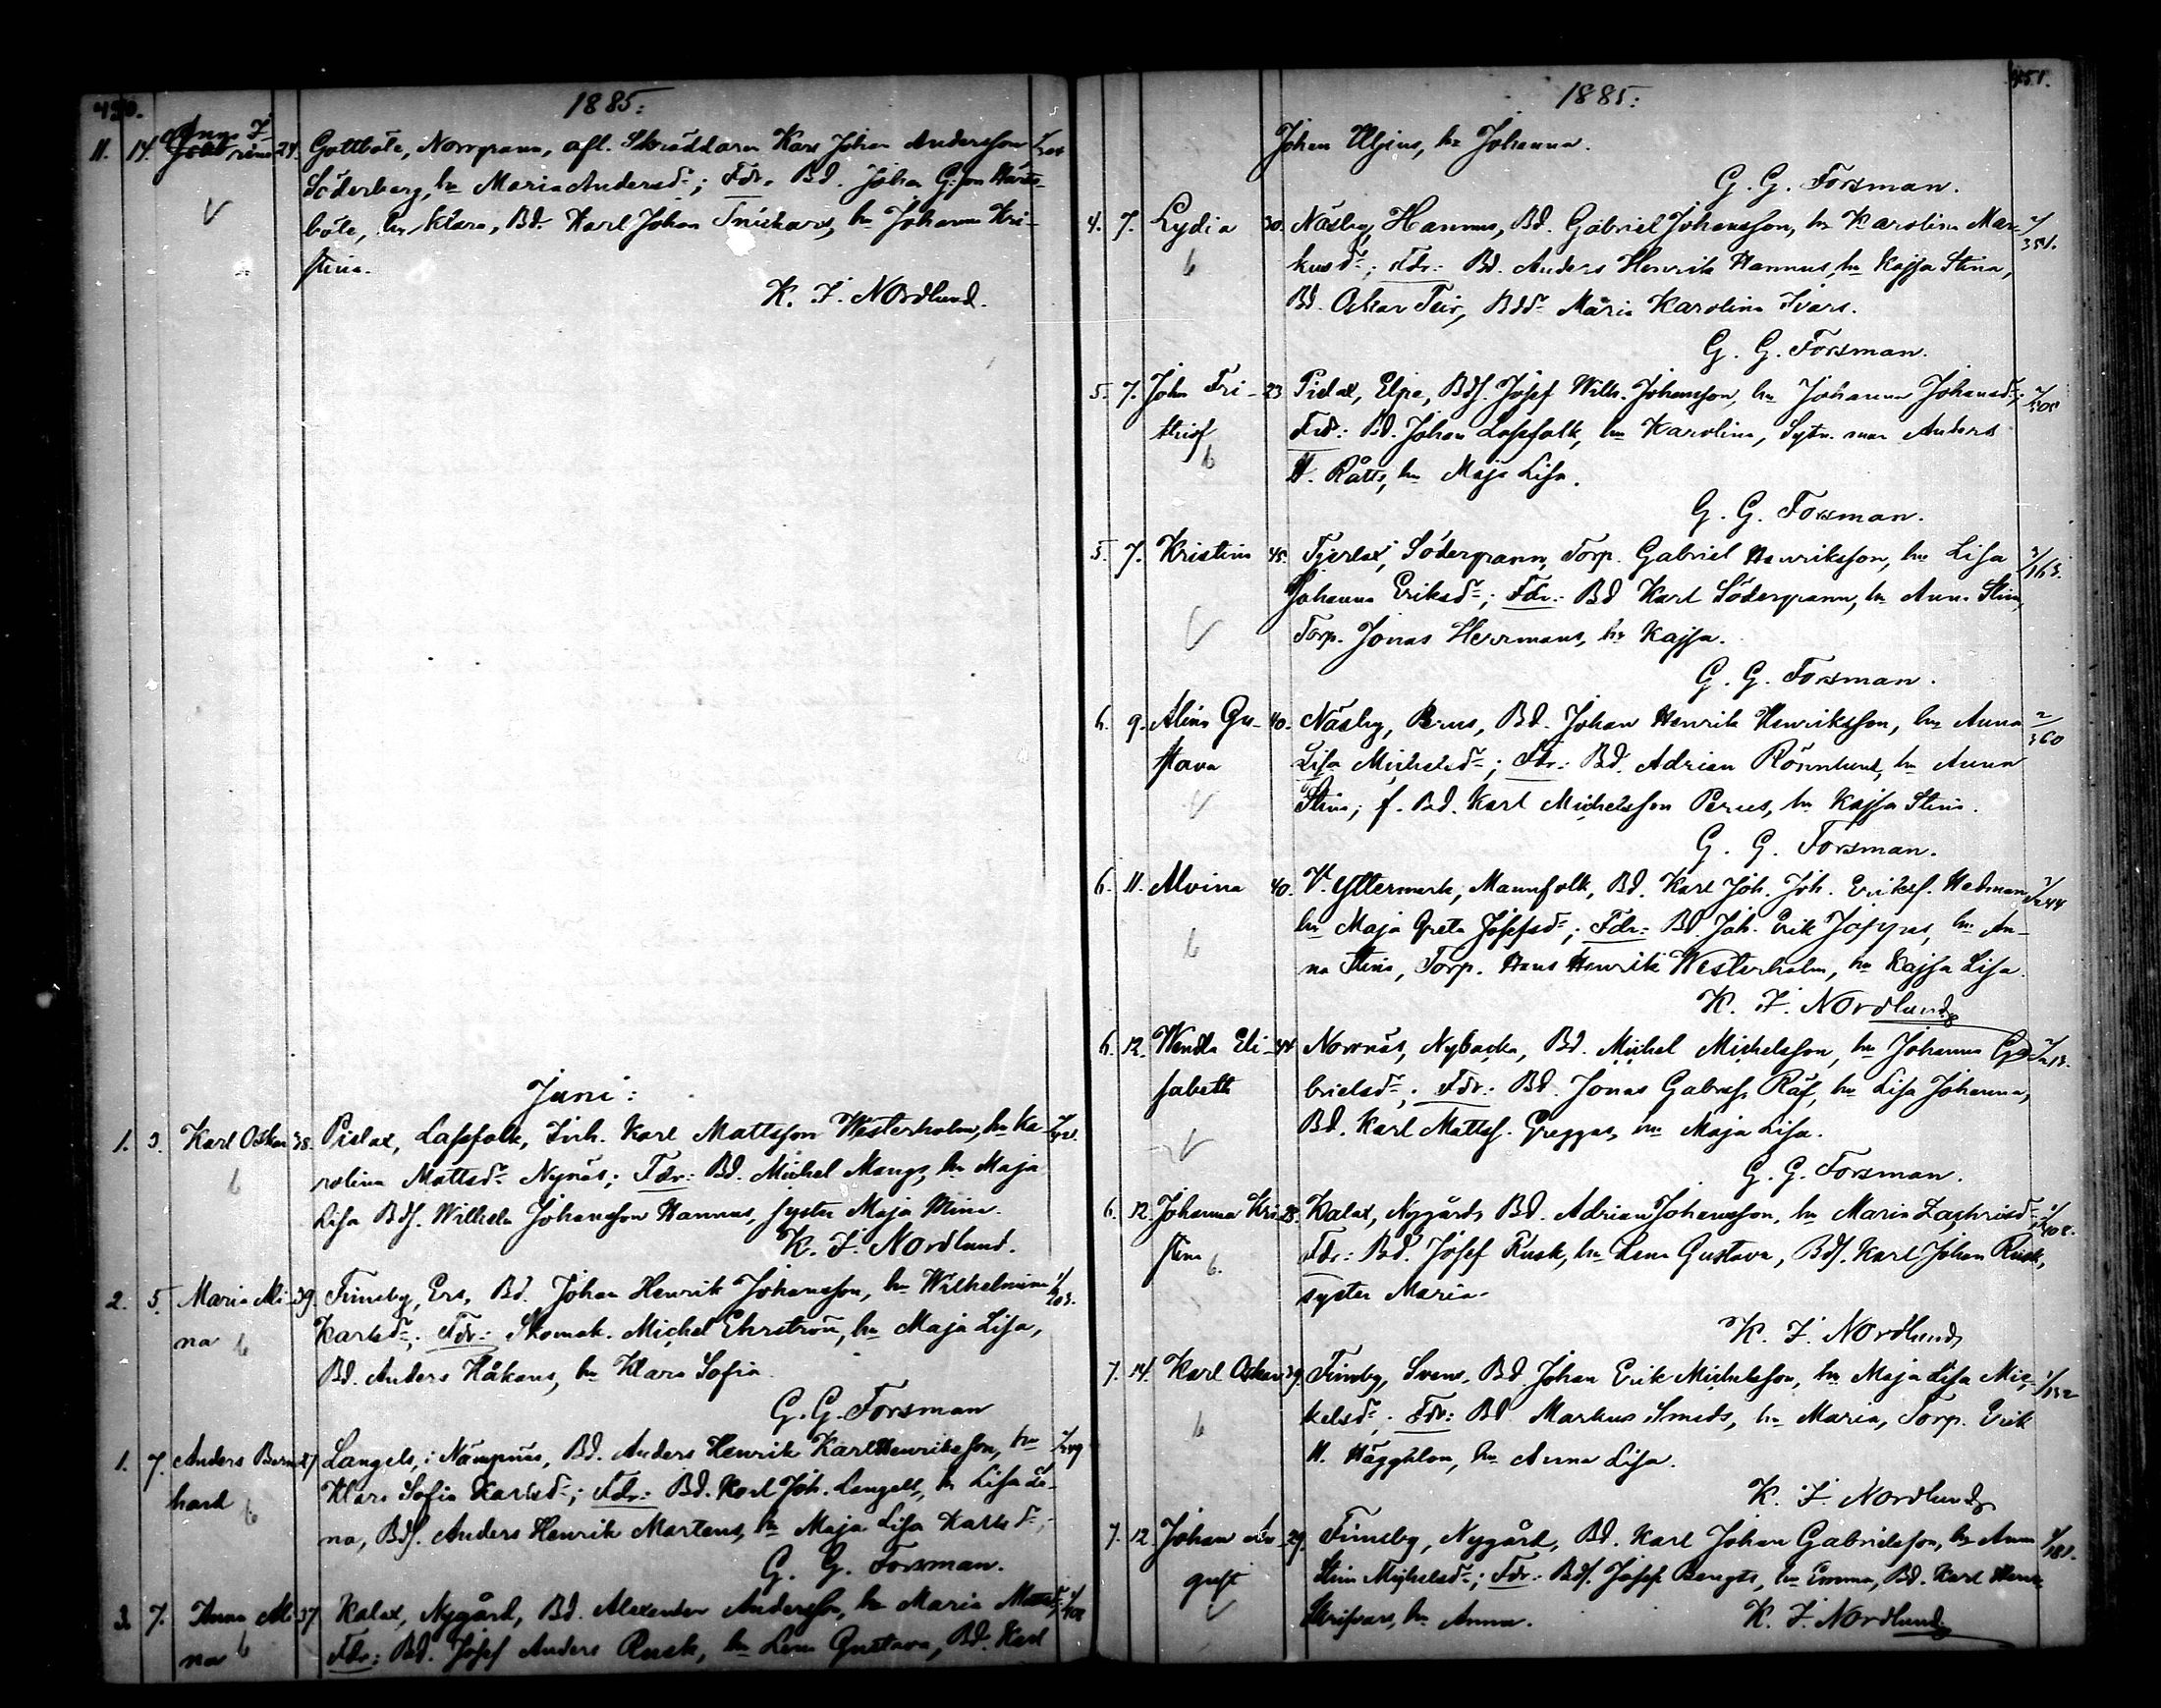 450.
1885:
11. 14. 24. Gottböle, Norrgrann, afl. Skräddaren Karl Johan Andersson
Söderberg, hu Maria Andersdr; Fdr. Bd. Johan G:son
böle, hu Klara, Bd. Karl Johan Snickars, hu Johanna Kri-
stina.
K. J. Nordlund.
Juni:
1. 3. Karl Oskar 38. Pislax, Lassfolk, Inh. Karl Mattsson Westerholm, hu Ka-
rolina Mattsdr Nynäs; Fdr: Bd. Michel Mangs, hu Maja
Lisa Bds. Wilhelm Johansson Hannus, syster Maja Mina.
K. J. Nordlund.
2. 5. Maria Mi- 39. Finnby, Ers, Bd. Johan Henrik Johansson, hu Wilhelmina 1/203.
na Karlsdr; Fdr: Skomak. Michel Ehrström, hu Maja Lisa,
Bd. Anders Håkans, hu Klara Sofia.
G. G. Forsman
1. 7. Anders Bern- 27 Langels, i Nämpnäs, Bd. Anders Henrik Karl Henriksson, hu
hard Klara Sofia Karlsdr; Fdr: Bd. Karl Joh. Langels, hu Lisa Le-
na, Bds. Anders Henrik Martens, hu Maja Lisa Karlsdr;
G. G. Forsman.
3. 7. Anna Mi- 37 Kalax, Nygård, Bd. Alexander Andersson, hu Maria Mattsdr
na Fdr: Bd. Josef Anders Rusk, hu Lena Gustava, Bd. Karl
451.
1885:
Johan Uljins, hu Johanna.
G. G. Forsman.
4. 7. Lydia 30. Näsby, Hannus, Bd. Gabriel Johansson, hu Karolina Mar- 2/351.
kusdr; Fdr: Bd. Anders Henrik Hannus, hu Kajsa Stina,
Bd. Oskar Teir, Bddr Maria Karolina Ivars.
G. G. Forsman.
5. 7. John Fri- 23 Pislax, Elpe, Bds. Josef Wilh. Johansson, hu Johanna Johansdr;
thiof Fdr: Bd. Johan Lassfolk, hu Karolina, Sytn. man Anders
H. Rätts, hu Maja Lisa.
G. G. Forsman.
5. 7. Kristina 45. Tjerlax, Södergrann, Torp. Gabriel Henriksson, hu Lisa 2/163.
Johanna Eriksdr; Fdr: Bd Karl Södergrann, hu Anna Stina,
Torp. Jonas Herrmans, hu Kajsa.
G. G. Forsman.
6. 9. Alina Gu- 40. Näsby, Perus, Bd. Johan Henrik Henriksson, hu Anna 2/360
stava Lisa Michelsdr; Fdr: Bd. Adrian Rönnlund, hu Anna
Stina; f. Bd. Karl Michelsson Perus, hu Kajsa Stina.
G. G. Forsman.
6. 11. Alvina 40. V. Yttermark, Mannfolk, Bd. Karl Joh. Joh. Eriks. Hedman
hu Maja Greta Josefsdr; Fdr: Bd. Joh. Erik hu An-
na Stina, Torp. Hans Henrik Westerholm, hu Kajsa Lisa.
K. J. Nordlund
6. 12. Wendla Eli- 34 Norrnäs, Nybacka, Bd. Michel Michelsson, hu Johanna Ga-
sabeth brielsdr; Fdr: Bd. Jonas Gabrels. Räf, hu Lisa Johanna,
Bd. Karl Mattss. Greggas, hu Maja Lisa.
G. G. Forsman.
6. 12. Johanna Kri- 28. Kalax, Nygårds Bd. Adrian Johansson, hu Maria Zachrisdr;
stina Fdr: Bd. Josef Rusk, hu Lena Gustava, Bds. Karl Johan Rusk,
syster Maria.
K. J. Nordlund
7. 14. Karl Oskar 39. Finnby, Svens, Bd Johan Erik Michelsson, hu Maja Lisa Mic- 1/132
kelsdr; Fdr: Bd. Markus Smeds, hu Maria, Torp. Erik
H. Häggblom, hu Anna Lisa.
K. J. Nordlund
7. 12. Johan Au- 29. Finnby, Nygård, Bd. Karl Johan Gabrielsson, hu Anna 1/181.
gust Stina Michelsdr; Fdr: Bds. Josef Bengts, hu Emma, Bd. Karl Henr.
Skrifvars, hu Anna. K. J. Nordlund